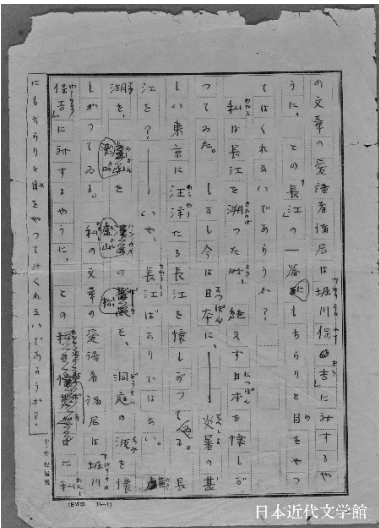 の文章の愛読者諸君は「堀川保吉」に対するや
うに、この「長江」の一篇にもちらりと目をやつ
てはくれないであらうか?
私は長江を溯つた時、絶えず日本を懐しが
つてゐた。しかし今は日本に、――炎暑の甚
しい東京に汪洋たる長江を懐しがつてゐる。長
江を?――いや、長江ばかりではない。
湖を、廬山を
漢口の
を、洞庭の波を懐
しがつてゐる。私の文章の愛読者諸君は「堀川
保吉」に対するやうに、この
にもちらりと目をやつてはくれないであらうか?
日本近代文学館